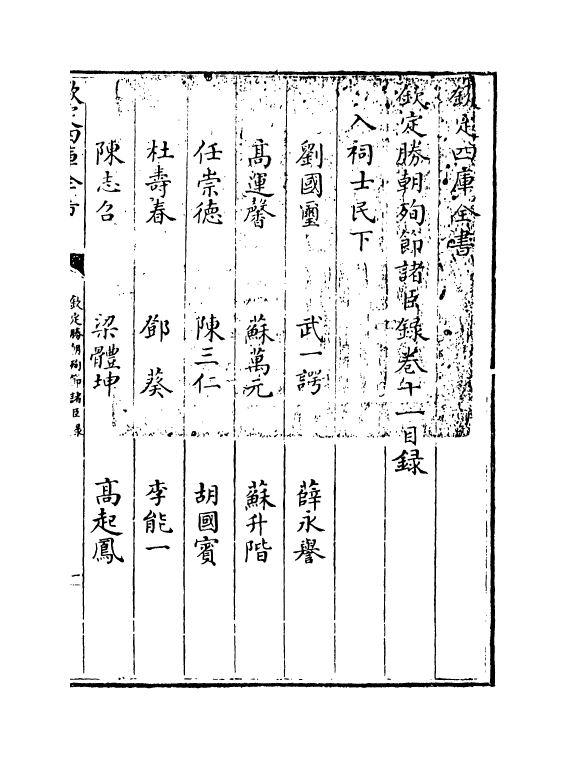 欽定四庫全書
欽定勝朝殉節諸臣録卷十一目録
入祠士民下
劉國璽 武一諤 薛永譽
髙運馨 蘇萬元 蘇升階
任崇德 陳三仁 胡國賓
杜壽春 鄧葵 李能一
陳志召 梁體坤 髙起鳳
欽定四庫全書 欽定勝朝殉節諸臣録 一